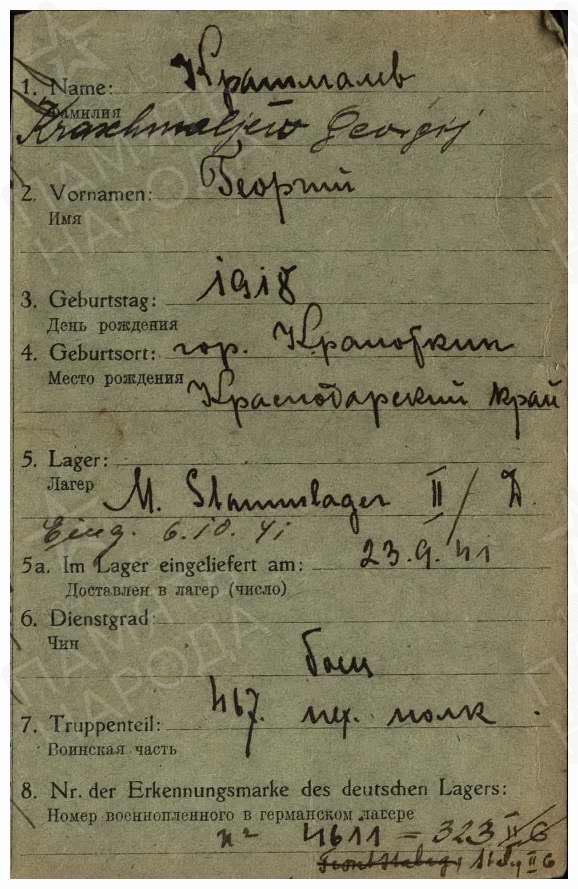 1. Name: Крахмалев
Фамилия
Krachmaljew Georgij
2. Vornamen: Георгий
Имя
1918
3. Geburtstag:
День рождения
4. Geburtsort: гор. Кропоткин
Место рождения
Краснодарский край
5. Lager:
Лагер
M. Stammlager II/D.
Eing. 6.10.41
5a. Im Lager eingeliefert am: 23.9.41
Доставлен в лагер (число)
6. Dienstgrad:
Чин
боец
467. пех. полк.
7. Truppenteil:
Воинская часть
8. Nr. der Erkennungsmarke des deutschen Lagers:
Номер военнопленного в германском лагере
№ 4611 = 323 II G
II G
ПАМЯТЬ
НАРОДА